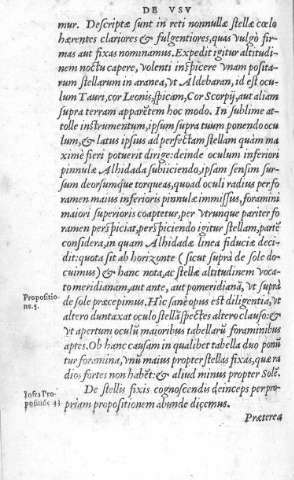 DE VSV
mur. Descriptæ sunt in reti nonnullæ stellæ cœlo
hærentes clariores & fulgentiores, quas vulgò fir-
mas aut fixas nominamus. Expedit igitur altitudi-
nem noctu capere, volenti inspicere vnam posita-
rum stellarum in aranea, vt Aldebaran, id est ocu-
lum Tauri, cor Leonis, spicam, Cor Scorpij, aut aliam
supra terram apparẽtem hoc modo. In sublime at-
tolle instrumentum, ipsum supra tuum ponendo ocu
lum, & latus ipsius ad perfectam stellam quim ma
ximè fieri potuerit dirige: deinde oculum inferiori
pinnulæ Alhidadæ subijciendo, ipsam sensim sur-
sum deorsumque torqueas, quoad oculi radius per fo
ramen maius inferioris pinnulæ immissus, foramini
maiori superioris coaptetur, per vtrunque pariter fo
ramen perspiciat, perspiciendo igitur stellam, partẽ
considera, in quam Alhidadæ linea fiduciæ deci-
dit: quota sit ab horizonte (sicut suprà de sole do-
cuimus) & hanc nota, æ stellæ altitudinem voca-
to meridianam, aut ante, aut pomeridianã, vt suprà
de sole præcepimus. Hic sanè opus est diligentia, vt
altero duntaxat oculo stellã spectes altero clauso: &
vt apertum oculũ maioribus tabellarũ foraminibus
aptes. Ob hanc causam in qualibet tabella duo ponũ
tur foramina, vnũ maius propter stellas fixas, quæ ra
dios fortes non habẽt: & aliud minus propter Solẽ.
De stellis fixis cognoscendis deinceps per pro-
priam propositionem abunde dicemus.
Præterea
Propositio-
ne. 5.
Infra Pro-
positiõe 43